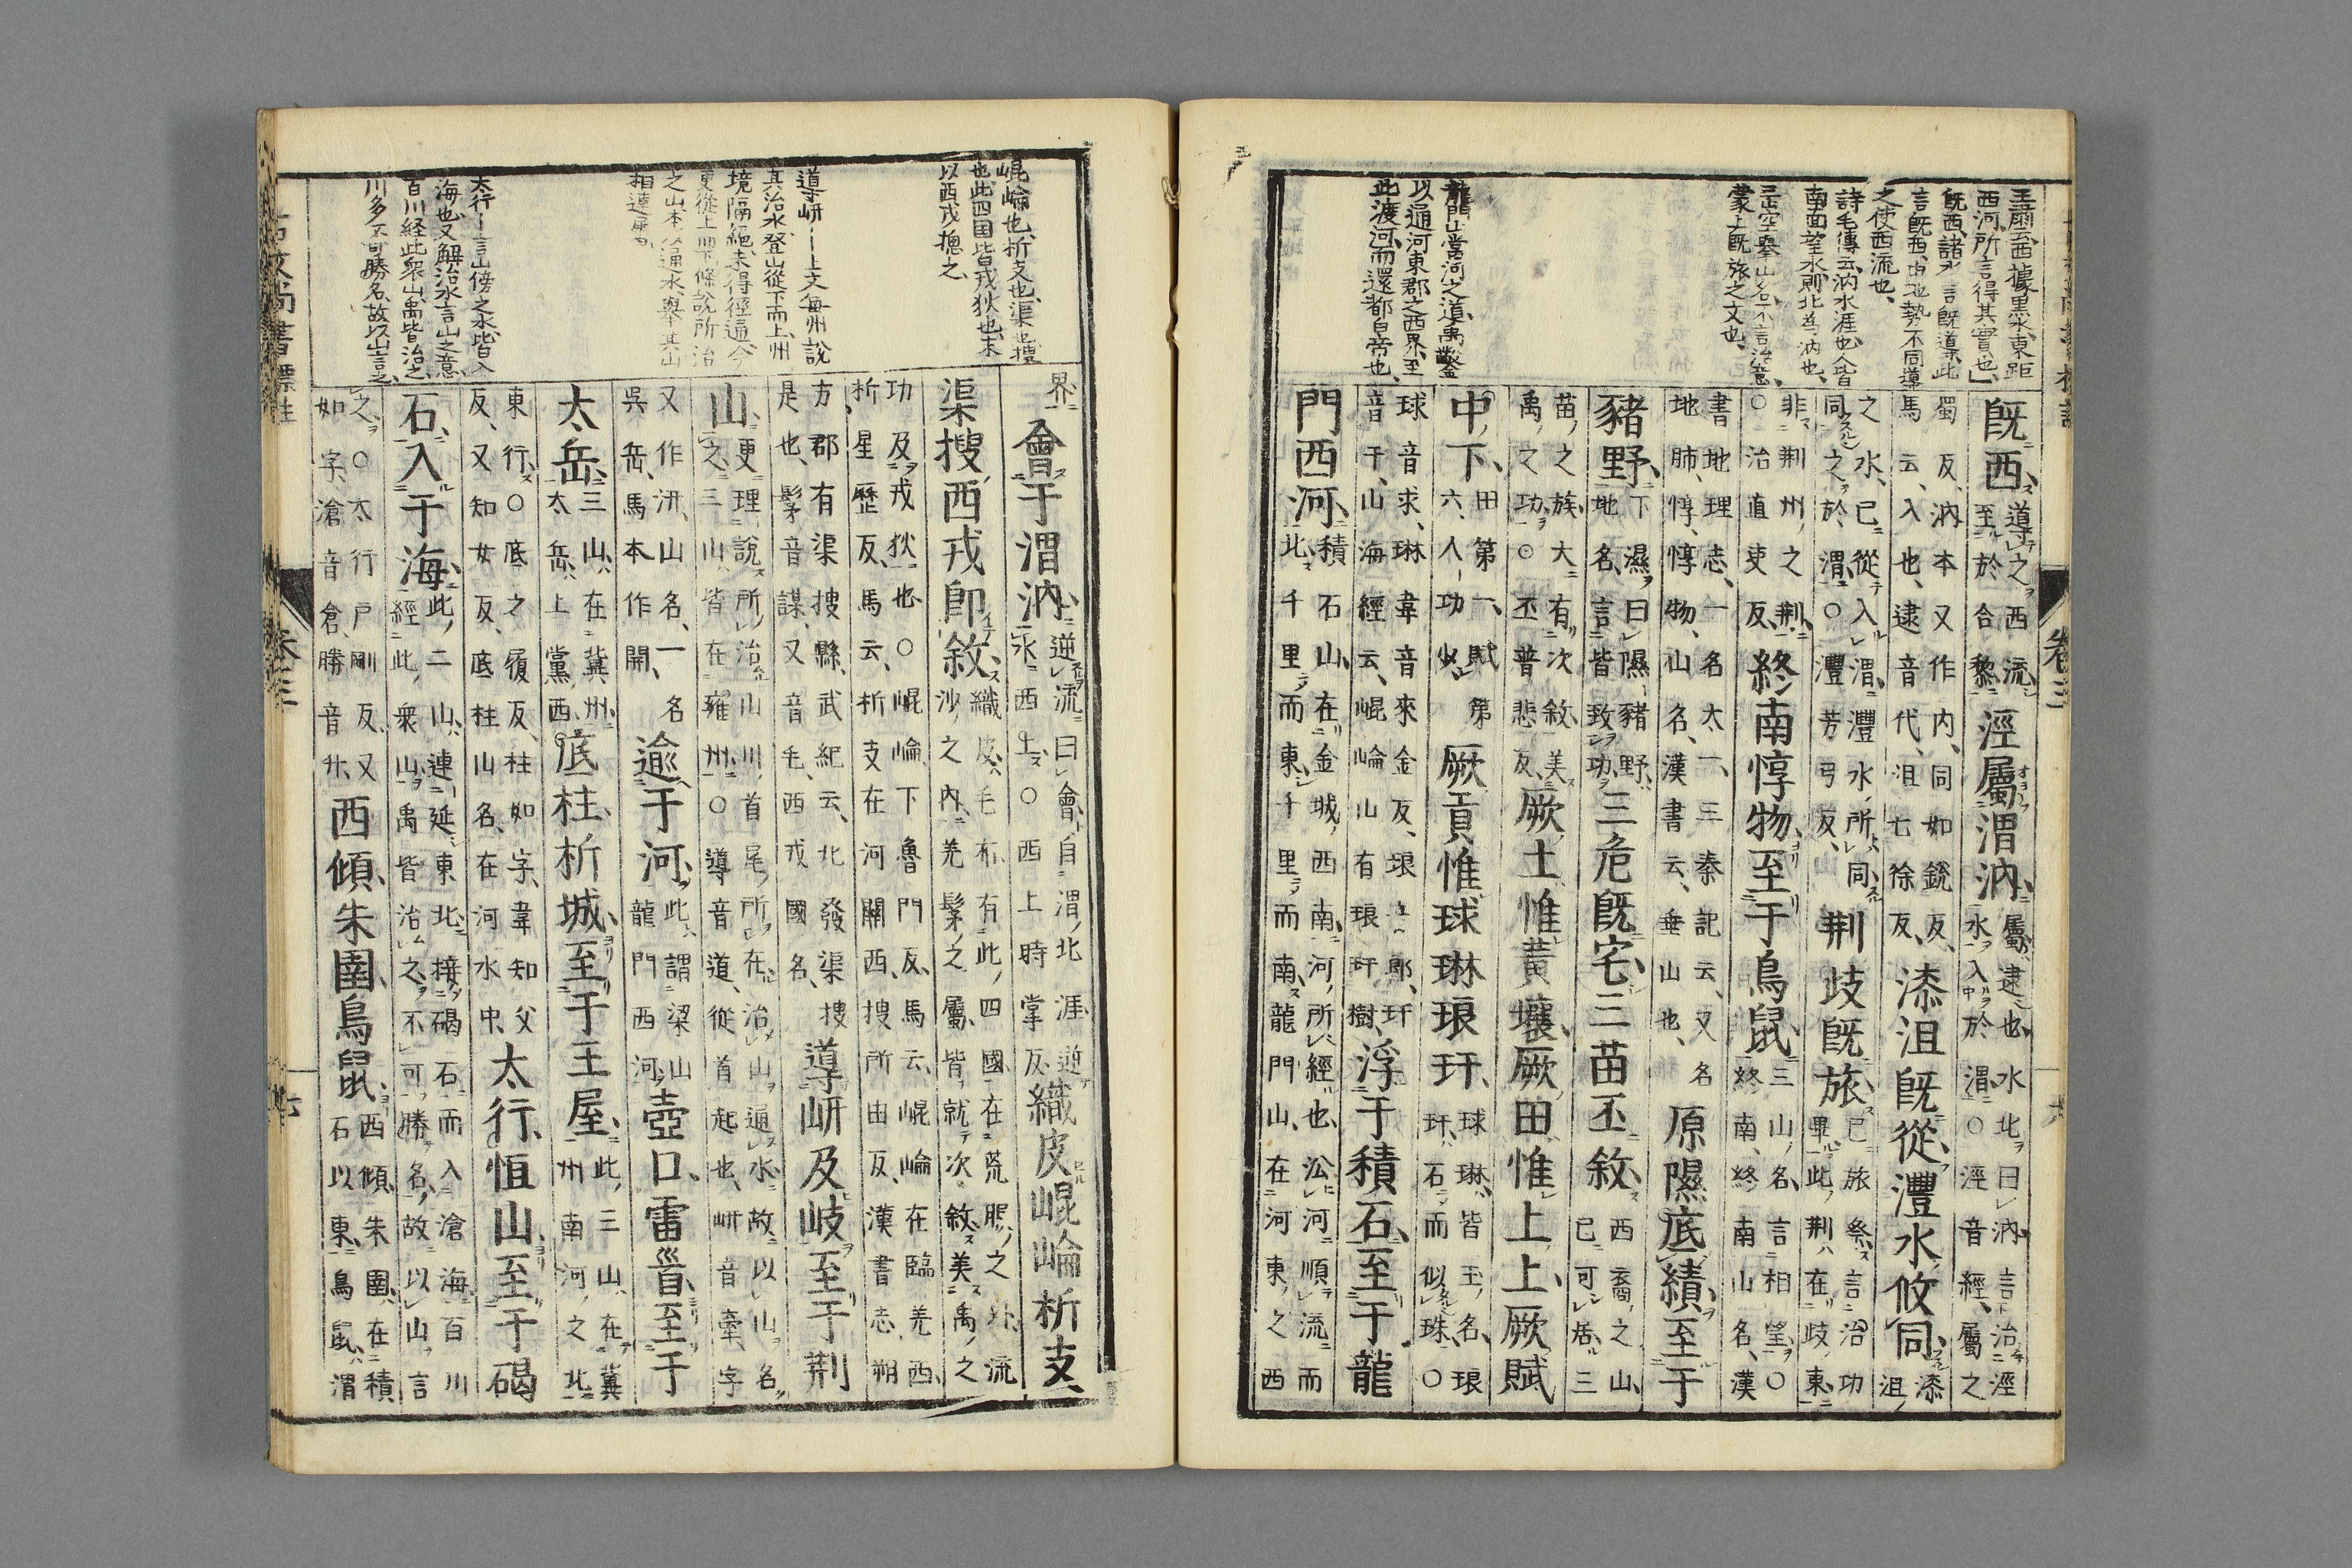 王肅云西據黒水東距
西河所言得其實也
既西諸水言既導此
言既西由地勢不同導
之使西流也
詩毛傳云汭水涯也人皆
南面望水則北為汭也
三山空舉山名不言治意
蒙上既旅之文也
龍門山當河之道禹鑿
以通河東郡之西界至
此渡河而還都白帝也
既西導之西流至於合黎涇屬渭汭屬逮也水北曰汭言治涇水入於渭○涇音經屬之
蜀反汭本又作内同如銳反馬云入也逮音代漆沮既從灃水攸同漆沮
之水已從入渭灃水所同同之於渭○灃芳弓反荆岐既旅已旅祭言治功畢此荆在岐東
非荆州之荆○治直吏反終南惇物至于鳥鼠三山名言相望○終南終南山名漢
書地理志一名太一三秦記云又名地肺惇惇物山名漢書云垂山也原隰底績至于
豬野下濕曰隰豬野地名言皆致功三危既宅三苗丕敘西裔之山已可居三
苗之族大有次敘美禹之功○丕普悲反厥土惟黄壤厥田惟上上厥賦
中下田第一賦第六人功少厥貢惟球琳琅玕球琳皆玉名琅玕石而似珠○
球音求琳韋音來金反琅音郎玕音干山海經云崐崘山有琅玕樹浮于積石至于龍
門西河積石山在金城西南河所經也㳂河順流而北千里而東千里而南龍門山在河東之西
卷三
崐崘也析支也渠也搜
也此四国皆戎狄也末
以西戎揔之
導岍ー上文毎州說
其治水登山從下而上州
境隔絕未得徑通今
更從上而下條說所治
之山本以通水舉其山
相連屬
太行ー言山傍之水皆入
海也又解治水言山之意
百川経此衆山禹皆治之
川多不可勝名故以山言之
界會于渭汭逆流曰會自渭北涯逆水西上○西上時掌反織皮崐崘析支
渠搜西戎即敘織皮毛布有此四國在荒服之外流沙之内羌髳之屬皆就次敘美禹之
功及戎狄也○崐崘下魯門反馬云崐崘在臨羌西析星歷反馬云析支在河關西搜所由反漢書志朔
方郡有渠搜縣武紀云北發渠搜是也髳音謀又音毛西戎國名導岍及岐至于荆
山更理說所治山川首尾所在治山通水故以山名之三山皆在雍州○導音道從首起也岍音牽字
又作汧山名一名吳岳馬本作開逾于河此謂梁山龍門西河壺口雷首至于
太岳三山在冀州太岳上黨西底柱析城至于王屋此三山在冀州南河之北
東行○底之履反柱如字韋知父反又知女反底柱山名在河水中太行恒山至于碣
石入于海此二山連延東北接碣石而入滄海百川經此衆山禹皆治之不可勝名故以山言
之○太行戸剛反又如字滄音倉勝音升西傾朱圉鳥鼠西傾朱圉在積石以東鳥鼠渭